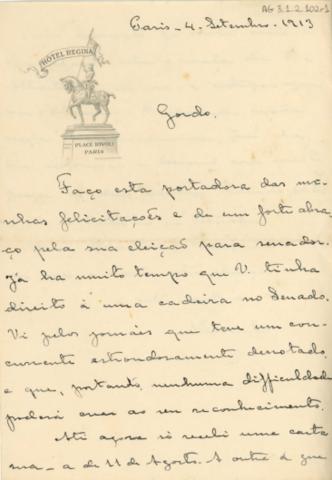 AG 3.1.2.102r-1
Paris - 4. Setembro. 1913
HOTEL REGINA
PLACE RIVOLI
PARIS
Gordo.
Faço esta portadora das mi-
nhas felicitações e de um forte abra-
ço pela sua eleição para senador.
Já ha muito tempo que V. tinha
direito á uma cadeira no Senado.
Vi pelos jornaes que teve um con-
currente estrondosamente derrotado
e que, portanto, nenhuma difficuldade
poderá crear ao seu reconhecimento.
Até agora só recebi uma carta
sua - a de 11 de Agosto. A outra á que